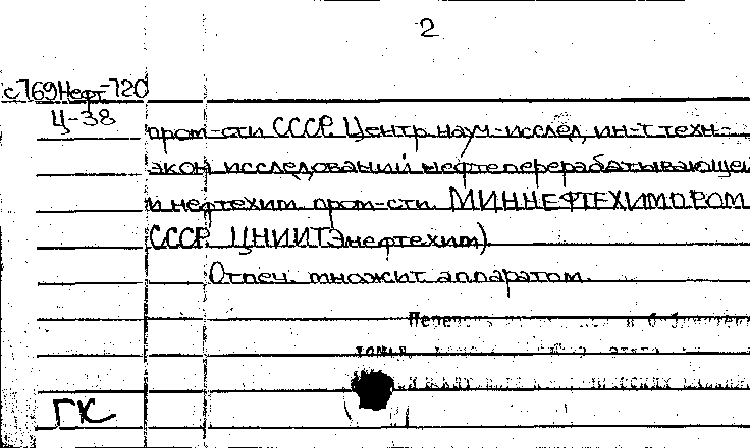 2
с769Нефт-720
Ц-38
пром-сти СССР. Центр. науч.-исслед. ин-т техн.-
экон исследований нефтеперерабатывающей
и нефтехим. пром-сти. МИННЕФТЕХИМПРОМ
СССР. ЦНИИТЭнефтехим).
Отпеч. множит. аппаратом.
ГК